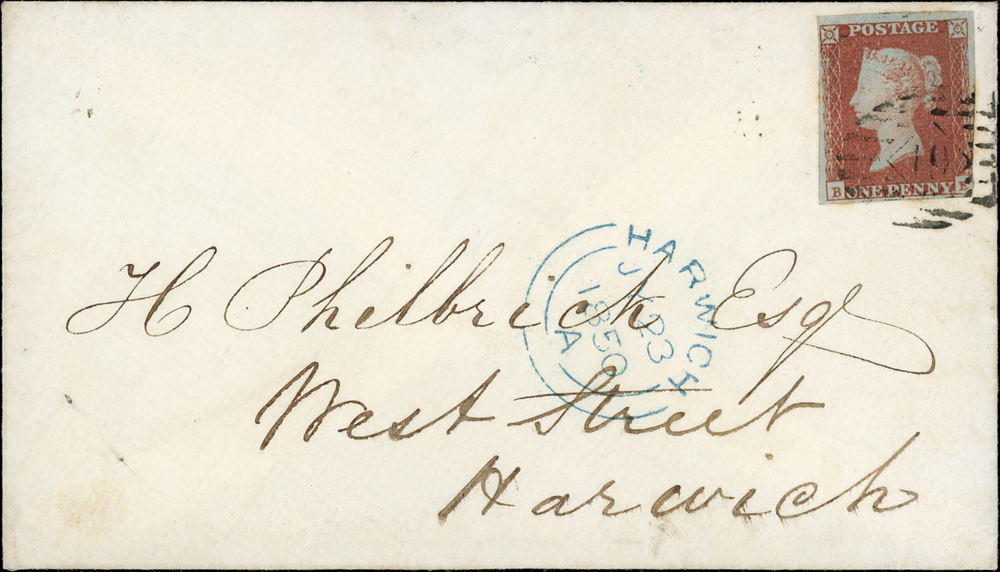 POSTAGE
B ONE PENNY
HARWICH
23
1850
A
H Philbrick Esq
West Street
Harwich